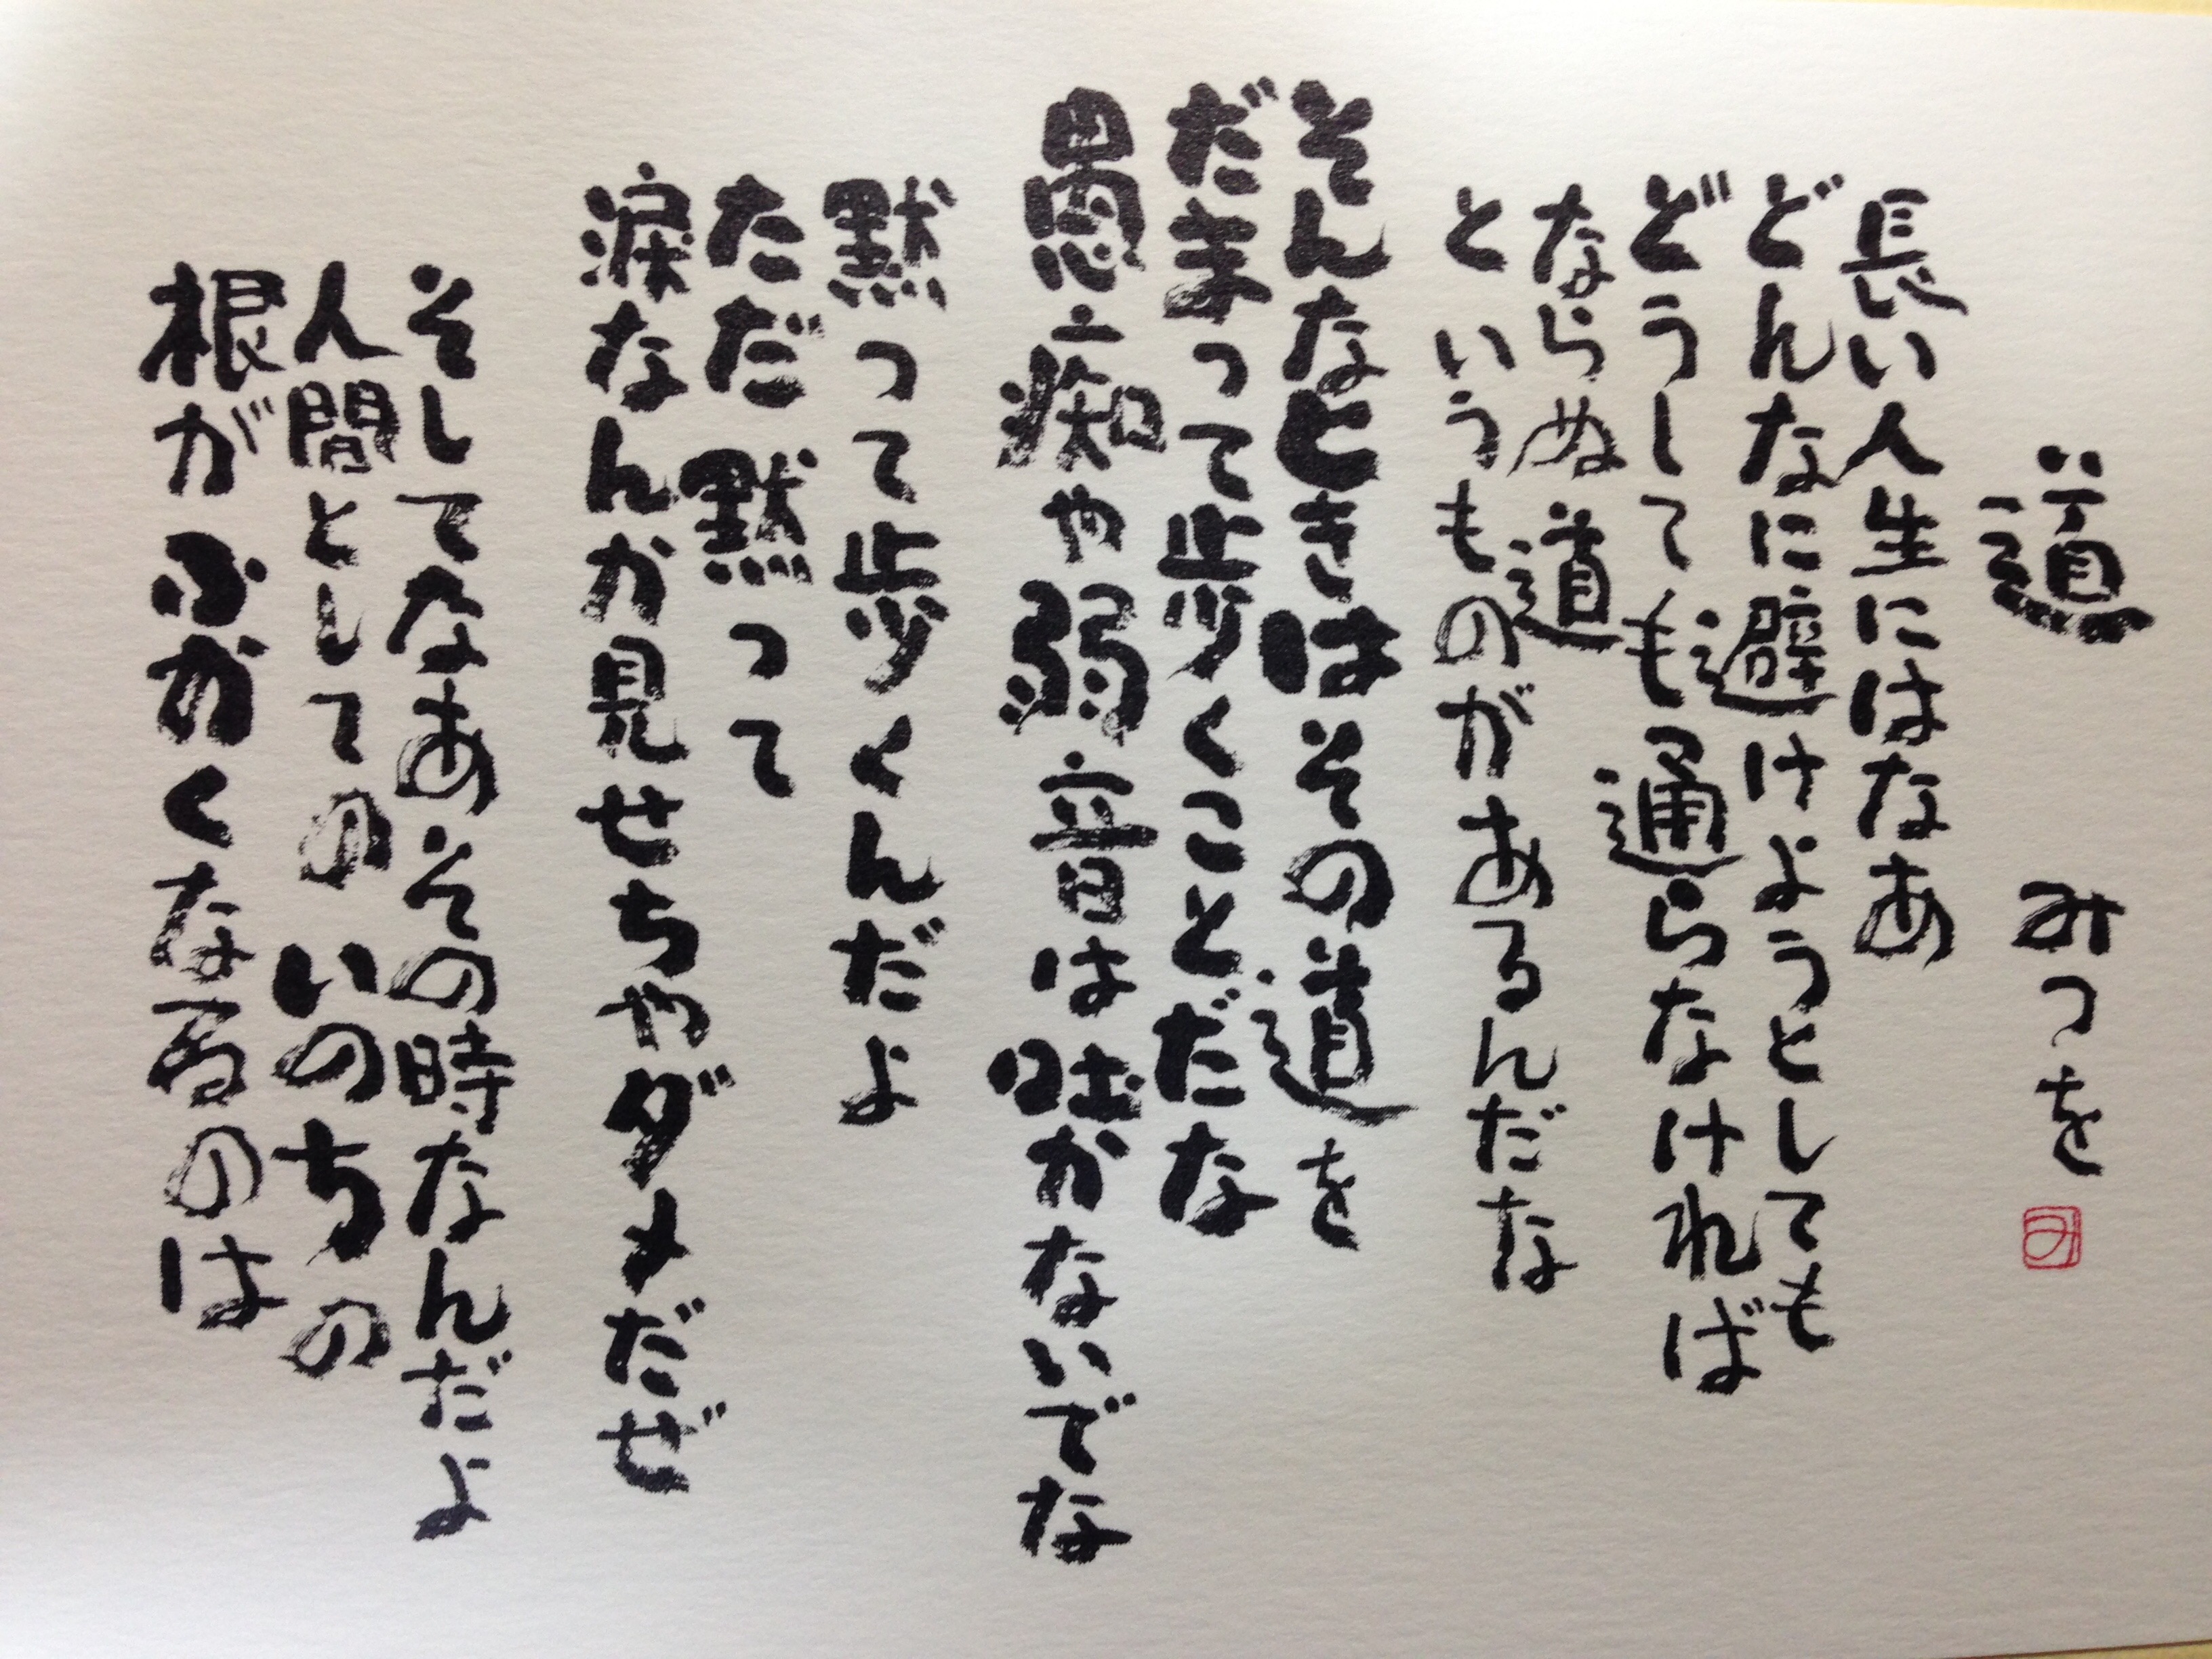 道 みつを
長い人生にはなあ
どんなに避けようとしても
どうしても通らなければ
ならぬ道
というものがあるんだな
そんなときはその道を
だまって歩くことだな
愚痴や弱音は吐かないでな
黙って歩くんだよ
ただ黙って
涙なんか見せちゃダメだぜ
そしてなあその時なんだよ
人間としてのいのちの
根がふかくなるのは
み